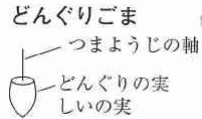 どんぐりごま
つまようじの軸
どんぐりの実
しいの実